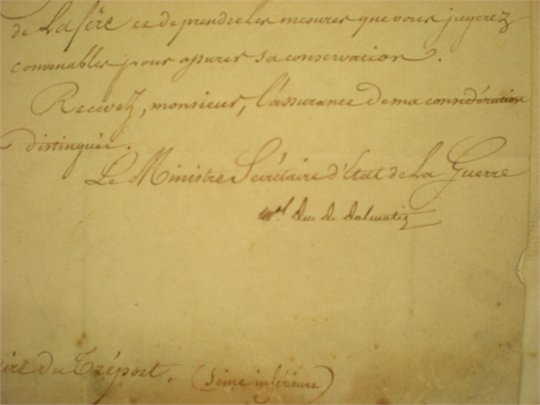 de Lafère et de prendre les mesures que vous jugerez
convenables pour assurer sa conservation.
Recevez, monsieur, l'assurance de ma considération
distinguée.
Le Ministre Secrétaire d'Etat de la Guerre
Mal Duc de Dalmatie
ire du Tréport. (Seine inférieure)